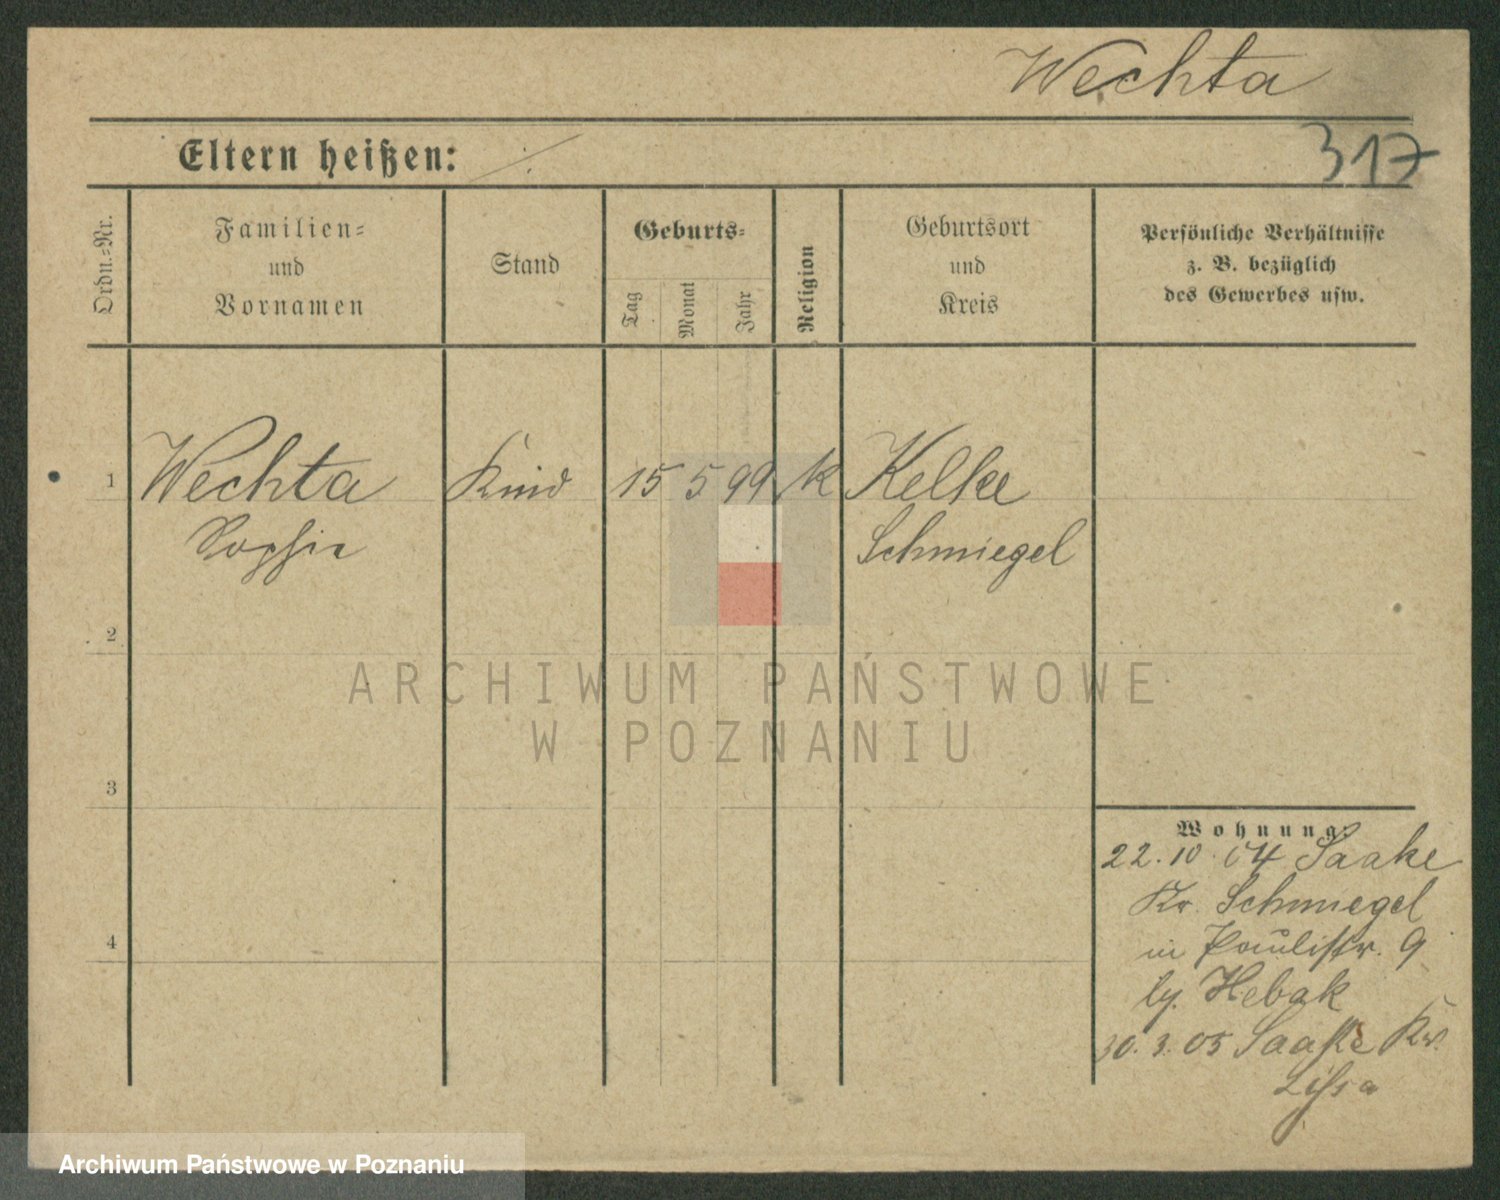 Wechta
317
Eltern heißen:
Ordn.-Nr.
Familien-
und
Vornamen
Stand
Geburts-
Tag
Monat
Jahr
Religion
Geburtsort
und
Kreis
Persönliche Verhältnisse
z. B. bezüglich
des Gewerbes usw.
1 Wechta Kind 15 5 99 k Kelke
Sophie Schmiegel
2
3
4
Wohnung:
22.10.04 Saake
Kr. Schmiegel
in Paulistr. 9
by. Hebak
30.3.05 Saake Kr.
Lissa
ARCHIWUM PAŃSTWOWE
W POZNANIU
Archiwum Państwowe w Poznaniu